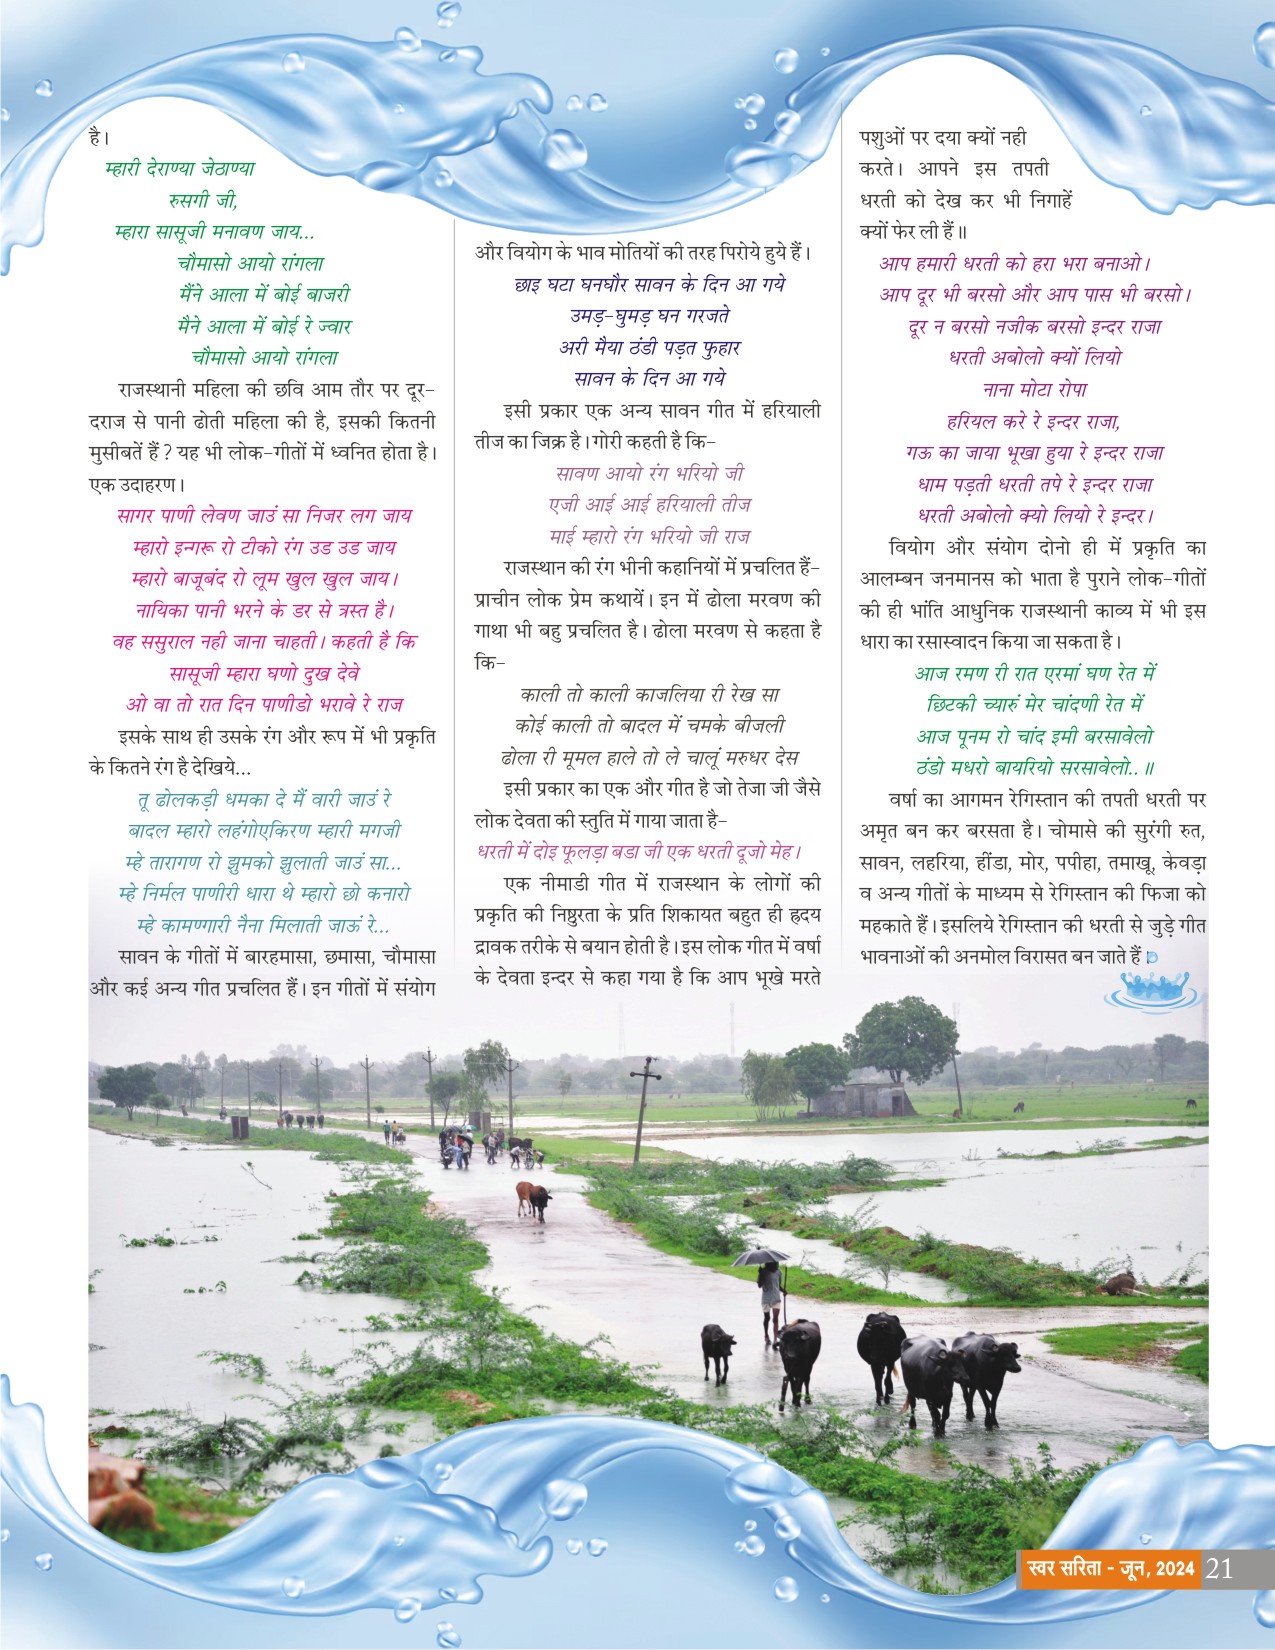 है।
म्हारी देराण्या जेठाण्या
रुसगी जी,
म्हारा सासूजी मनावण जाय...
चौमासो आयो रांगला
मैंने आला में बोई बाजरी
मैने आला में बोई रे ज्वार
चौमासो आयो रांगला
राजस्थानी महिला की छवि आम तौर पर दूर-
दराज से पानी ढोती महिला की है, इसकी कितनी
मुसीबतें हैं ? यह भी लोक-गीतों में ध्वनित होता है।
एक उदाहरण।
सागर पाणी लेवण जाउं सा निजर लग जाय
म्हारो इन्गरू रो टीको रंग उड उड जाय
म्हारो बाजूबंद रो लूम खुल खुल जाय।
नायिका पानी भरने के डर से त्रस्त है।
वह ससुराल नही जाना चाहती। कहती है कि
सासूजी म्हारा घणो दुख देवे
ओ वा तो रात दिन पाणीडो भरावे रे राज
इसके साथ ही उसके रंग और रूप में भी प्रकृति
के कितने रंग है देखिये...
तू ढोलकड़ी धमका दे मैं वारी जाउं रे
बादल म्हारो लहंगोएकिरण म्हारी मगजी
म्हे तारागण रो झुमको झुलाती जाउं सा...
म्हे निर्मल पाणीरी धारा थे म्हारो छो कनारो
म्हे कामण्गारी नैना मिलाती जाऊं रे...
सावन के गीतों में बारहमासा, छमासा, चौमासा
और कई अन्य गीत प्रचलित हैं। इन गीतों में संयोग
और वियोग के भाव मोतियों की तरह पिरोये हुये हैं।
छाइ घटा घनघौर सावन के दिन आ गये
उमड़-घुमड़ घन गरजते
अरी मैया ठंडी पड़त फुहार
सावन के दिन आ गये
इसी प्रकार एक अन्य सावन गीत में हरियाली
तीज का जिक्र है। गोरी कहती है कि-
सावण आयो रंग भरियो जी
एजी आई आई हरियाली तीज
माई म्हारो रंग भरियो जी राज
राजस्थान की रंग भीनी कहानियों में प्रचलित हैं-
प्राचीन लोक प्रेम कथायें। इन में ढोला मरवण की
गाथा भी बहु प्रचलित है। ढोला मरवण से कहता है
कि-
काली तो काली काजलिया री रेख सा
कोई काली तो बादल में चमके बीजली
ढोला री मूमल हाले तो ले चालूं मरुधर देस
इसी प्रकार का एक और गीत है जो तेजा जी जैसे
लोक देवता की स्तुति में गाया जाता है-
धरती में दोइ फूलड़ा बडा जी एक धरती दूजो मेह।
एक नीमाडी गीत में राजस्थान के लोगों की
प्रकृति की निष्ठुरता के प्रति शिकायत बहुत ही ह्रदय
द्रावक तरीके से बयान होती है। इस लोक गीत में वर्षा
के देवता इन्दर से कहा गया है कि आप भूखे मरते
पशुओं पर दया क्यों नही
करते। आपने इस तपती
धरती को देख कर भी निगाहें
क्यों फेर ली हैं॥
आप हमारी धरती को हरा भरा बनाओ।
आप दूर भी बरसो और आप पास भी बरसो।
दूर न बरसो नजीक बरसो इन्दर राजा
धरती अबोलो क्यों लियो
नाना मोटा रोपा
हरियल करे रे इन्दर राजा,
गऊ का जाया भूखा हुया रे इन्दर राजा
धाम पड़ती धरती तपे रे इन्दर राजा
धरती अबोलो क्यो लियो रे इन्दर।
वियोग और संयोग दोनो ही में प्रकृति का
आलम्बन जनमानस को भाता है पुराने लोक-गीतों
की ही भांति आधुनिक राजस्थानी काव्य में भी इस
धारा का रसास्वादन किया जा सकता है।
आज रमण री रात एरमां घण रेत में
छिटकी च्यारुं मेर चांदणी रेत में
आज पूनम रो चांद इमी बरसावेलो
ठंडो मधरो बायरियो सरसावेलो..॥
वर्षा का आगमन रेगिस्तान की तपती धरती पर
अमृत बन कर बरसता है। चोमासे की सुरंगी रुत,
सावन, लहरिया, हींडा, मोर, पपीहा, तमाखू, केवड़ा
व अन्य गीतों के माध्यम से रेगिस्तान की फिजा को
महकाते हैं। इसलिये रेगिस्तान की धरती से जुड़े गीत
भावनाओं की अनमोल विरासत बन जाते हैं।
स्वर सरिता - जून, 2024 21